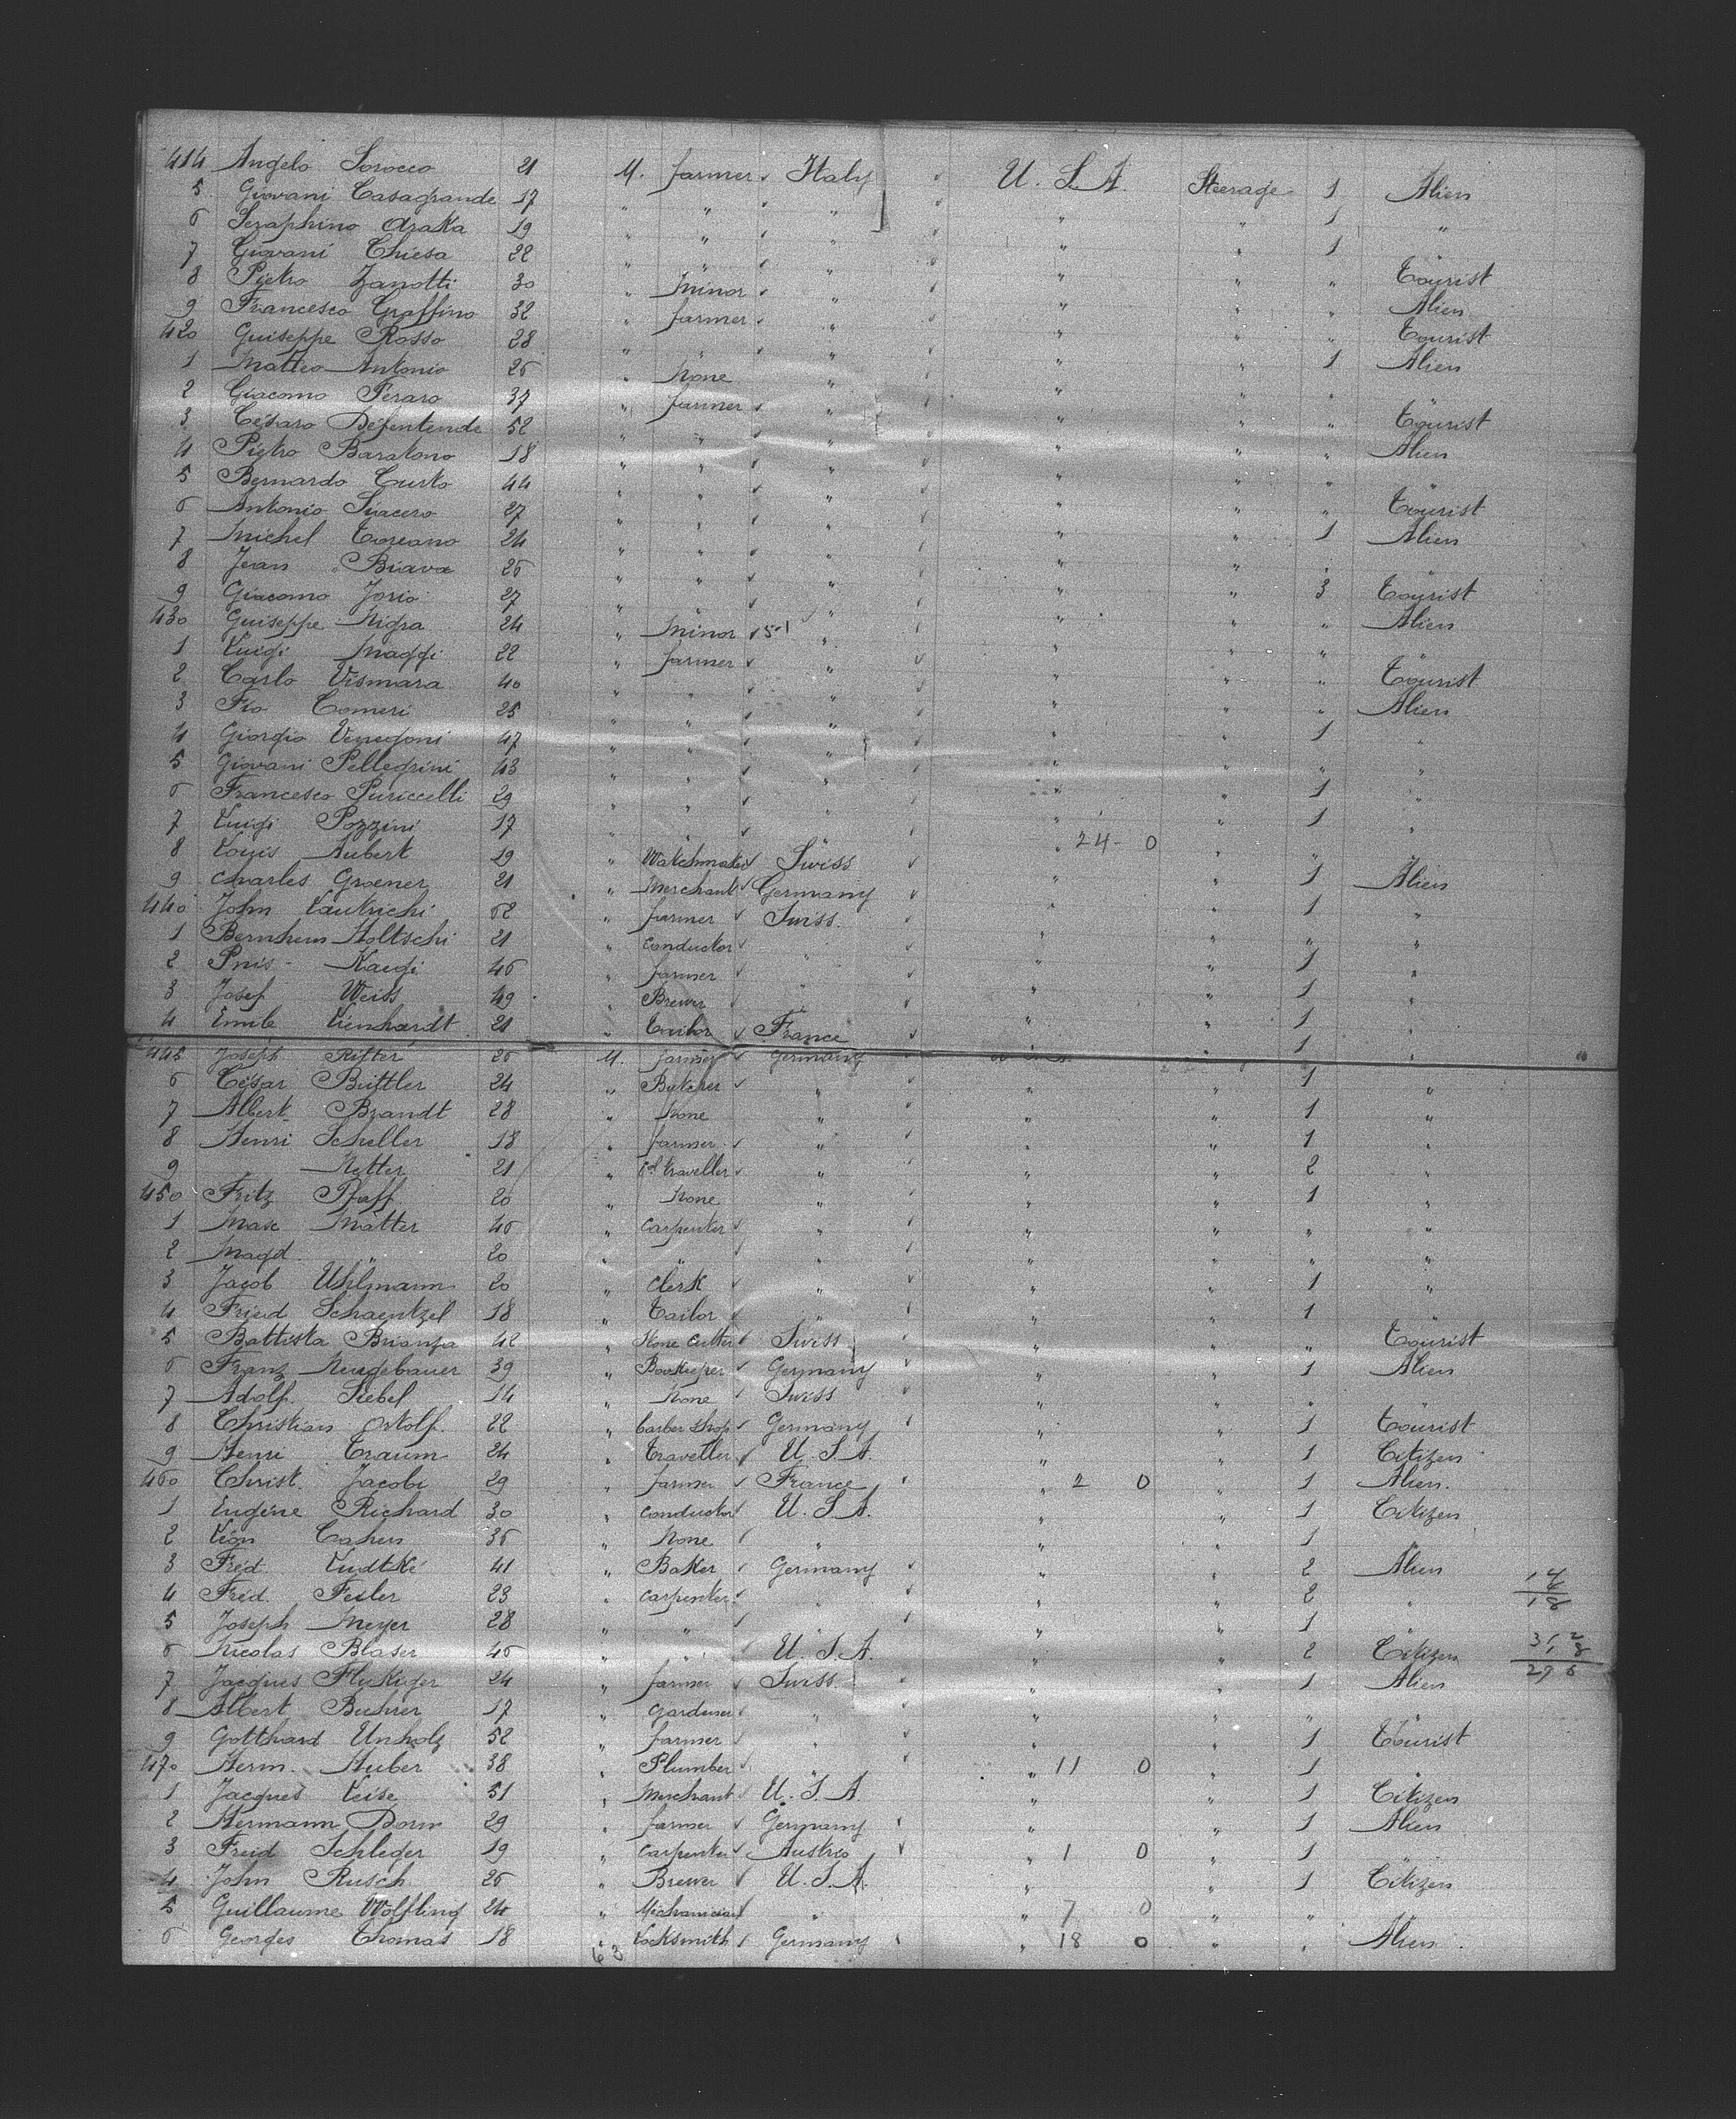 414 Angelo Sorocco 21 M. farmer Italy U.S.A. Steerage 1 Alien
5 Giovani Casagrande 17 " " " " " 1 "
6 Seraphino Araka 19 " " " " " 1
7 Giovani Chiesa 22 " " " " " " Tourist
8 Pietro Zanotti 30 " Minor " " " " Alien
9 Francesco Graffino 32 " farmer " " " " Tourist
420 Guiseppe Rosso 28 " " " " " 1 Alien
1 Matteo Antonio 26 " None " " " " "
2 Giacomo Feraro 37 " farmer " " " " Tourist
3 Césaro Défentende 52 " " " " " " Alien
4 Pietro Baratono 18 " " " " " " "
5 Bernardo Curto 44 " " " " " " Tourist
6 Antonio Suacero 27 " " " " " 1 Alien
7 Michel Coreano 24 " " " " " " "
8 Jean Biava 26 " " " " " 3 Tourist
9 Giacomo Jorio 27 " " " " " " Alien
430 Guiseppe Nigra 24 " Minor 51 " " " " "
1 Luigi Maggi 22 " farmer " " " " Tourist
2 Carlo Vismara 40 " " " " " " Alien
3 Fio Comeri 25 " " " " " 1 "
4 Giorgio Venegoni 47 " " " " " " "
5 Giovani Pellegrini 43 " " " " " 1 "
6 Francesco Puriccelli 29 " " " " " 1 "
7 Luigi Pozzini 17 " " " " 24- 0 " "
8 Louis Aubert 19 " Watchmaker Swiss " " 1 Alien
9 Charles Groener 21 " Merchant Germany " " 1 "
440 John Lautrichi 62 " farmer Swiss " " " "
1 Bernhem Holtschi 21 " Conductor " " " 1 "
2 Kaegi 46 " farmer " " " 1 "
3 Josef Weiss 49 " Brewer " " " 1 "
4 Emile Lienhardt 21 " Tailor France " " 1 "
445 Joseph Ritter 26 M. farmer Germany " 1 "
6 César Büttler 24 " Butcher " " " 1 "
7 Albert Brandt 28 " None " " " 1 "
8 Henri Scheller 18 " farmer " " " 2 "
9 Netter 21 " Cl traveller " " " 1 "
450 Fritz Pfaff 20 " None " " " " "
1 Max Mätter 46 " Carpenter " " " " "
2 Magd. " 20 " " " " " 1 "
3 Jacob Uhlmann 20 " Clerk " " " 1
4 Fried Schaentzel 18 " Tailor " " " " Tourist
5 Battista Brianza 42 " Stone Cutter Swiss " " 1 Alien
6 Franz Neugebauer 39 " Bookkeeper Germany " " " "
7 Adolf. Siebel 14 " None Swiss " " 1 Tourist
8 Christian Wolf. 22 " barber shop Germany " " 1 Citizen
9 Henri Traum 24 " Traveller U.S.A. " " 1 Alien.
460 Christ. Jacobi 29 " farmer France " 2 0 " 1 Citizen
1 Eugéne Richard 30 " Conductor U.S.A. " " 1 "
2 Léon Cahen 36 " None " " " 2 Alien
3 Fréd. Ludtké 41 " Baker Germany " " 2 "
4 Fred. Feiler 23 " Carpenter " " " 1 "
5 Joseph Meyer 28 " " " " " 2 Citizen
6 Nicolas Blaser 46 " " U.S.A. " " 1 Alien
7 Jacques Flukiger 24 " farmer Swiss " " " "
8 Albert Buhrer 17 " Gardener " " " 1 Tourist
9 Gotthard Unholz 52 " farmer " " " 1
470 Herm. Huber 38 " Plumber " " 11 0 " 1 Citizen
1 Jacques Leise 51 " Merchant U.S.A. " " 1 Alien
2 Hermann Dorn 29 " farmer Germany " " 1
3 Freid Schleger 19 " Carpenter Austria " 1 0 " 1 Citizen
4 John Rusch 26 " Brewer U.S.A. " " "
5 Guillaume Wölfling 24 " Mechanician " " 7 0 " "
6 Georges Thomas 18 " Locksmith Germany " 18 0 " " Alien.
63